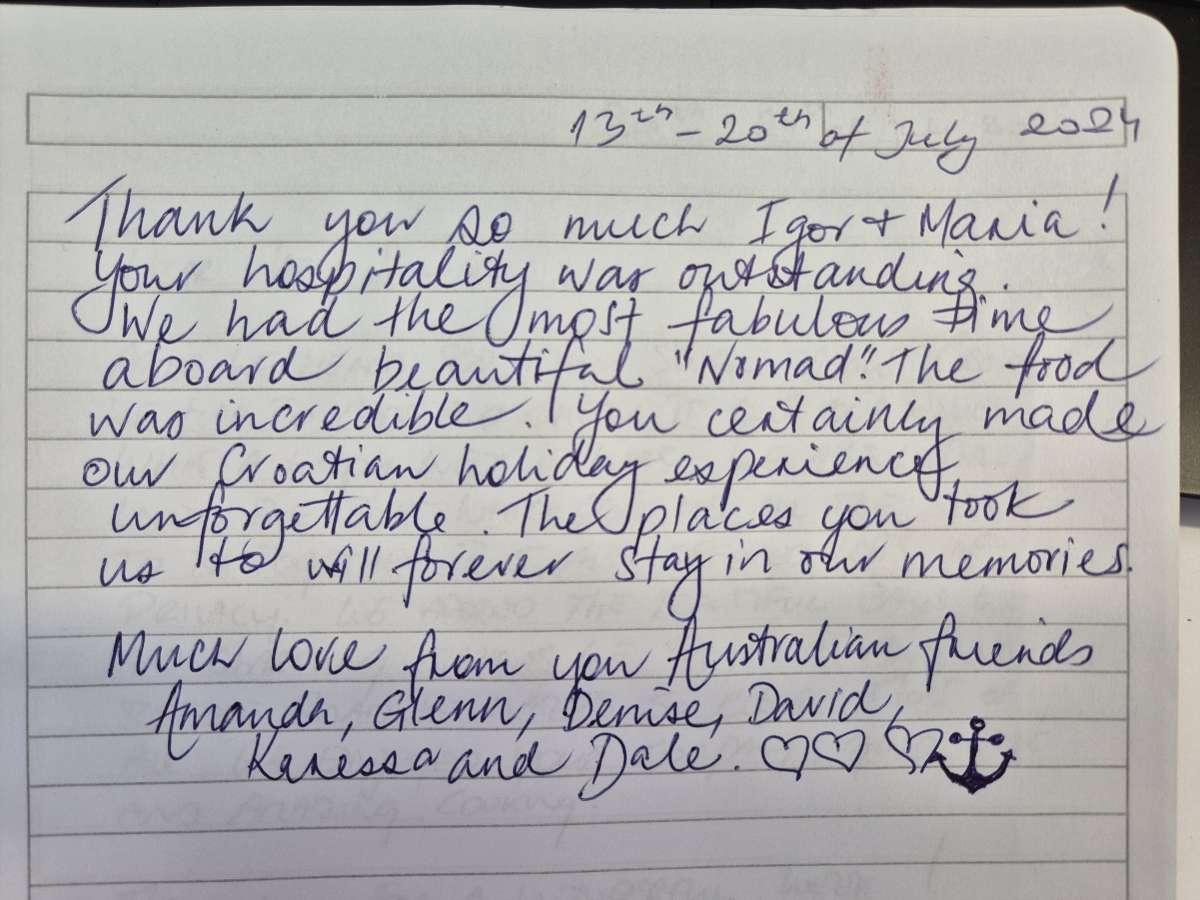 13th - 20th of July 2024
Thank you so much Igor + Maria!
Your hospitality was outstanding.
We had the most fabulous time
aboard beautiful "Nomad". The food
was incredible. You certainly made
our Croatian holiday experience
unforgettable. The places you took
us to will forever stay in our memories.
Much love from you Australian friends
Amanda, Glenn, Denise, David,
Karessa and Dale.